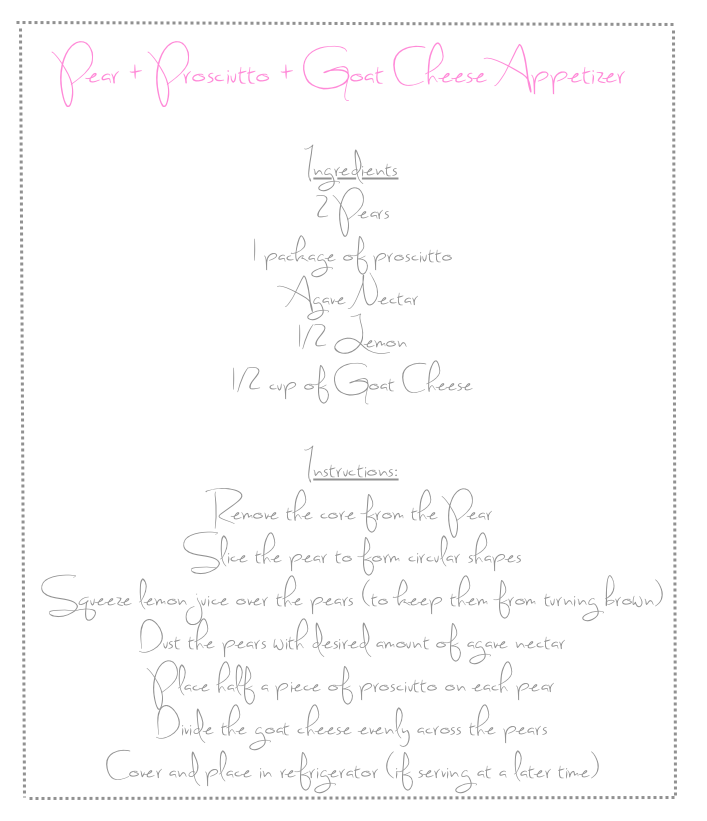 Pear + Prosciutto + Goat Cheese Appetizer
Ingredients
2 Pears
1 package of prosciutto
Agave Nectar
1/2 Lemon
1/2 cup of Goat Cheese
Instructions:
Remove the core from the Pear
Slice the pear to form circular shapes
Squeeze lemon juice over the pears (to keep them from turning brown)
Dust the pears with desired amount of agave nectar
Place half a piece of prosciutto on each pear
Divide the goat cheese evenly across the pears
Cover and place in refrigerator (if serving at a later time)